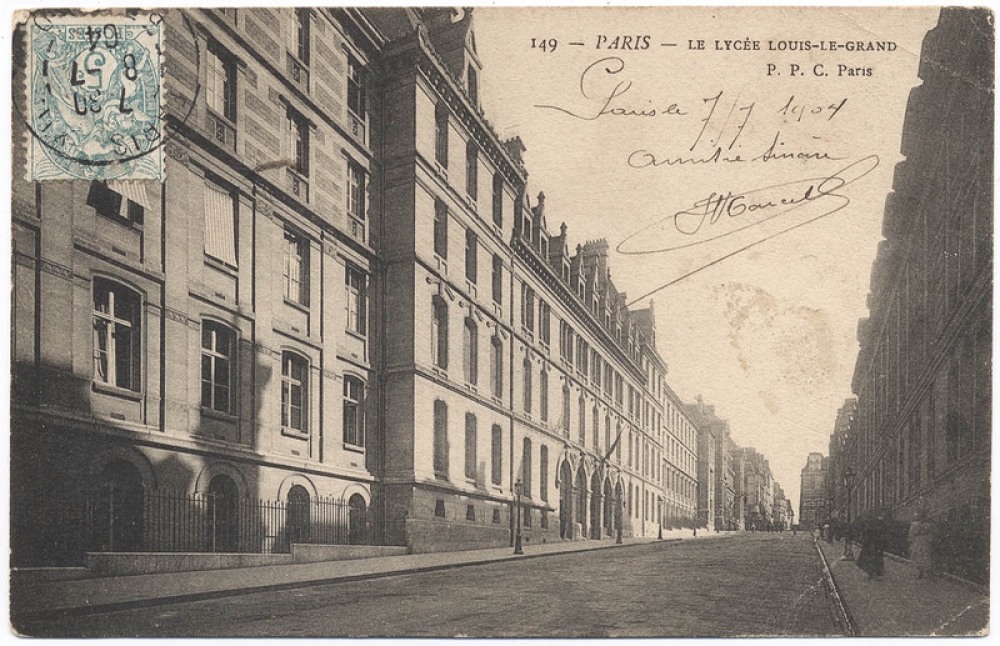 149 — PARIS — LE LYCÉE LOUIS-LE-GRAND
P. P. C. Paris
Paris le 7/7 1904
amitié sincère
Marcel
PARIS
7
8 - 7
04